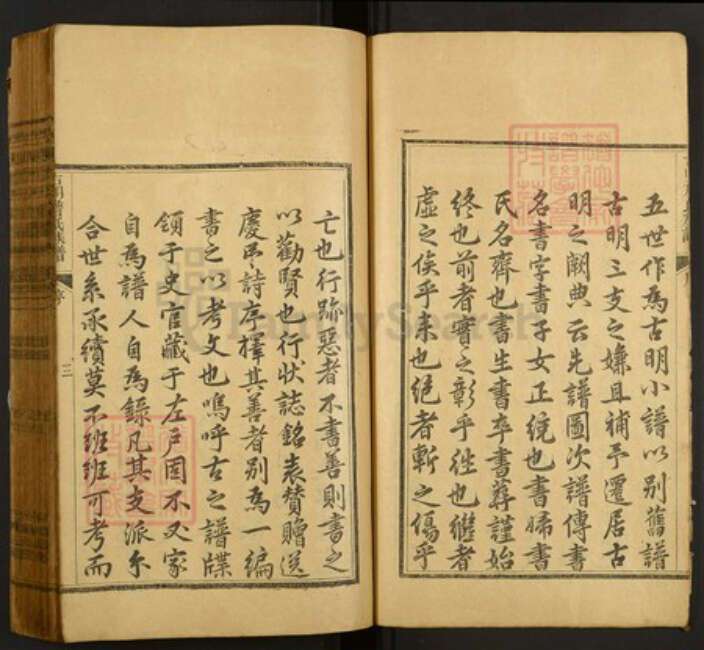 五世作爲古明小譜以别舊譜
古明三支之嫌且補予遷居古
明之闕典云先譜圖次譜傳書
名書字書子女正統也書婦書
氏名齊也書生書卒書葬謹始
終也前者實之彰乎往也繼者
虛之俟乎來也絕者斬之傷乎
亡也行跡惡者不書善則書之
以勸賢也行狀誌銘表贊贈送
慶弔詩序擇其善者别爲一編
書之以考文也嗚呼古之譜牒
領于史官藏于左戶固不又家
自爲譜人自爲錄凡其支派分
合世系承續莫不班班可考而
三
FamilySearch